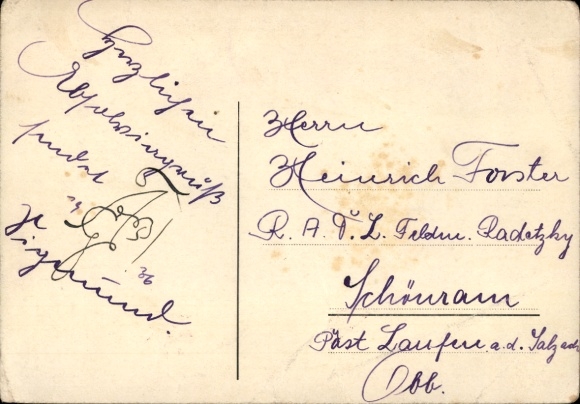 Herzlichen
Absolviergruß
sendet
H. Sigmund.
36
Herrn
Heinrich Forster
R. A. D. L. Feldm. Radetzky
Schönram
Post Laufen a. d. Salzach
Obb.